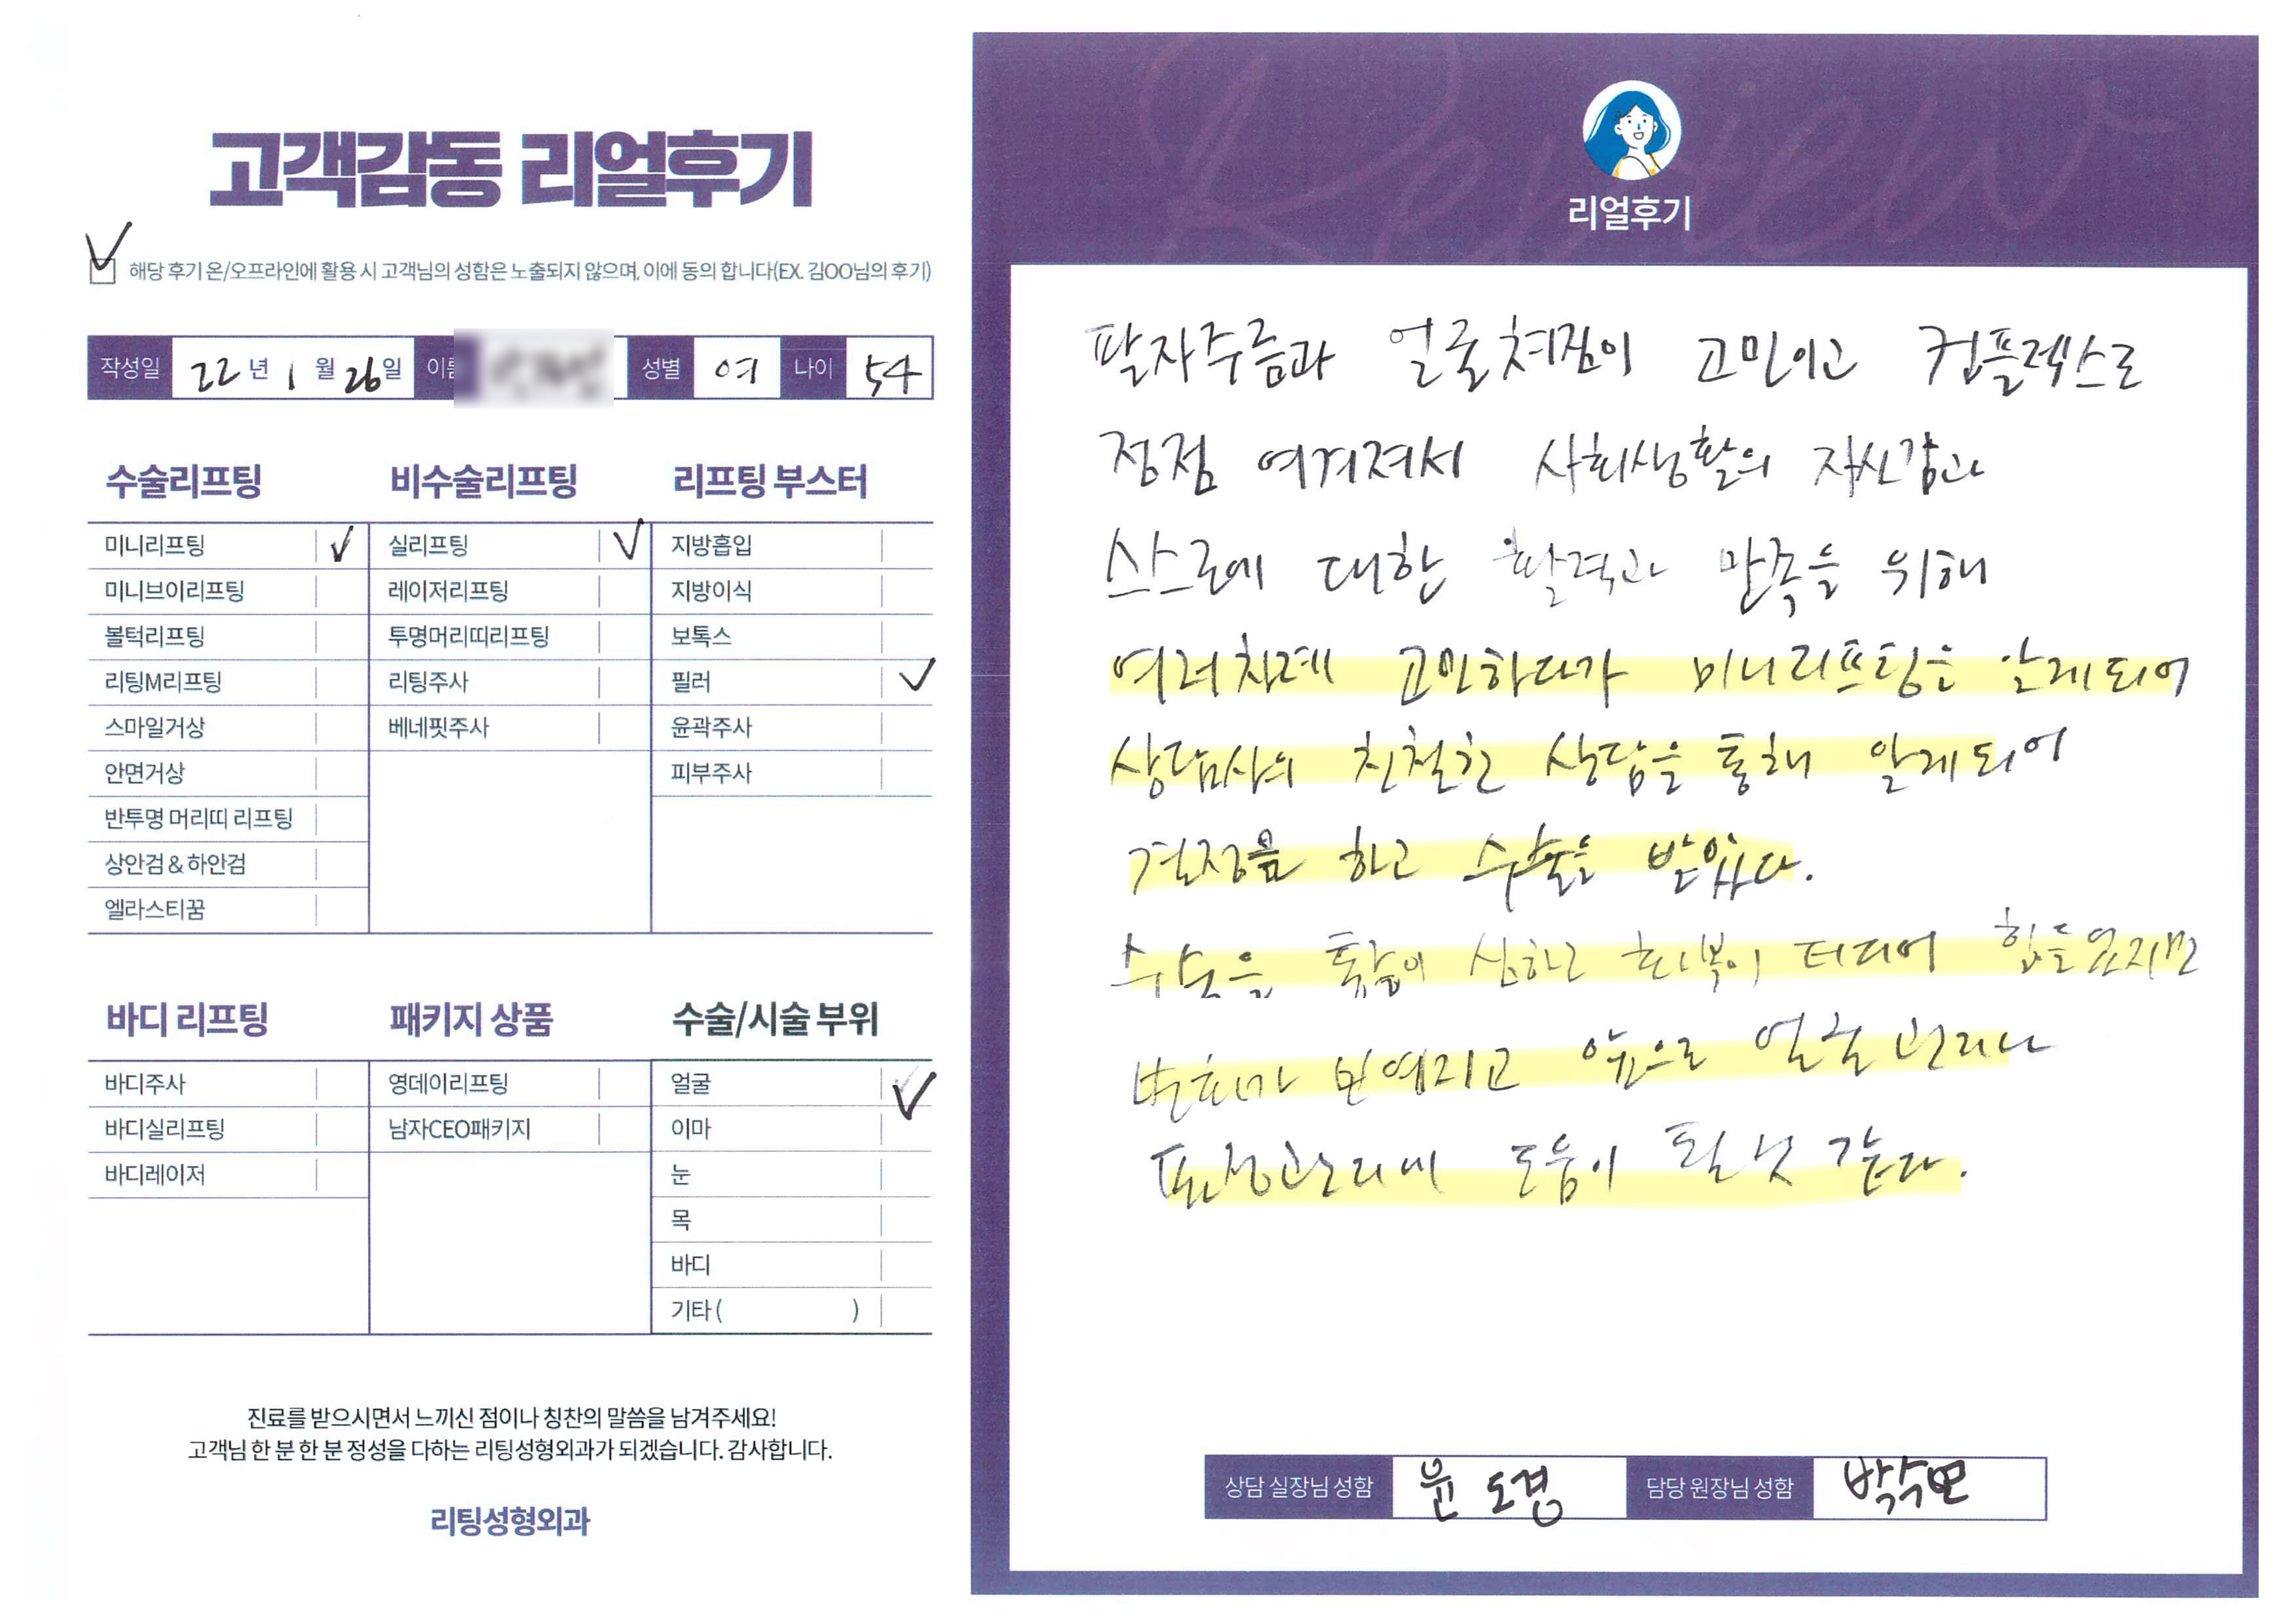 고객감동 리얼후기
해당 후기 온/오프라인에 활용 시 고객님의 성함은 노출되지 않으며, 이에 동의 합니다(EX. 김OO님의 후기)
작성일 22년 1월 26일 이름 성별 여 나이 54
수술리프팅
미니리프팅
미니브이리프팅
볼턱리프팅
리팅M리프팅
스마일거상
안면거상
반투명 머리띠 리프팅
상안검 & 하안검
엘라스티꿈
비수술리프팅
실리프팅
레이저리프팅
투명머리띠리프팅
리팅주사
베네핏주사
리프팅 부스터
지방흡입
지방이식
보톡스
필러
윤곽주사
피부주사
바디 리프팅
바디주사
바디실리프팅
바디레이저
패키지 상품
영데이리프팅
남자CEO패키지
수술/시술 부위
얼굴
이마
눈
목
바디
기타 ( )
진료를 받으시면서 느끼신 점이나 칭찬의 말씀을 남겨주세요!
고객님 한 분 한 분 정성을 다하는 리팅성형외과가 되겠습니다. 감사합니다.
리팅성형외과
Review
리얼후기
팔자주름과 얼굴쳐짐이 고민이고 컴플렉스로
점점 여겨져서 사회생활의 자신감과
스스로에 대한 활력과 만족을 위해
여러차례 고민하다가 미니리프팅을 알게되어
상담사의 친절한 상담을 통해 알게되어
결정을 하고 수술을 받았다.
수술은 통증이 심하고 회복이 더디어 힘들었지만
변화가 보여지고 앞으로 얼굴관리나
표정관리에 도움이 될 것 같다.
상담 실장님 성함 윤도경 담당 원장님 성함 박수